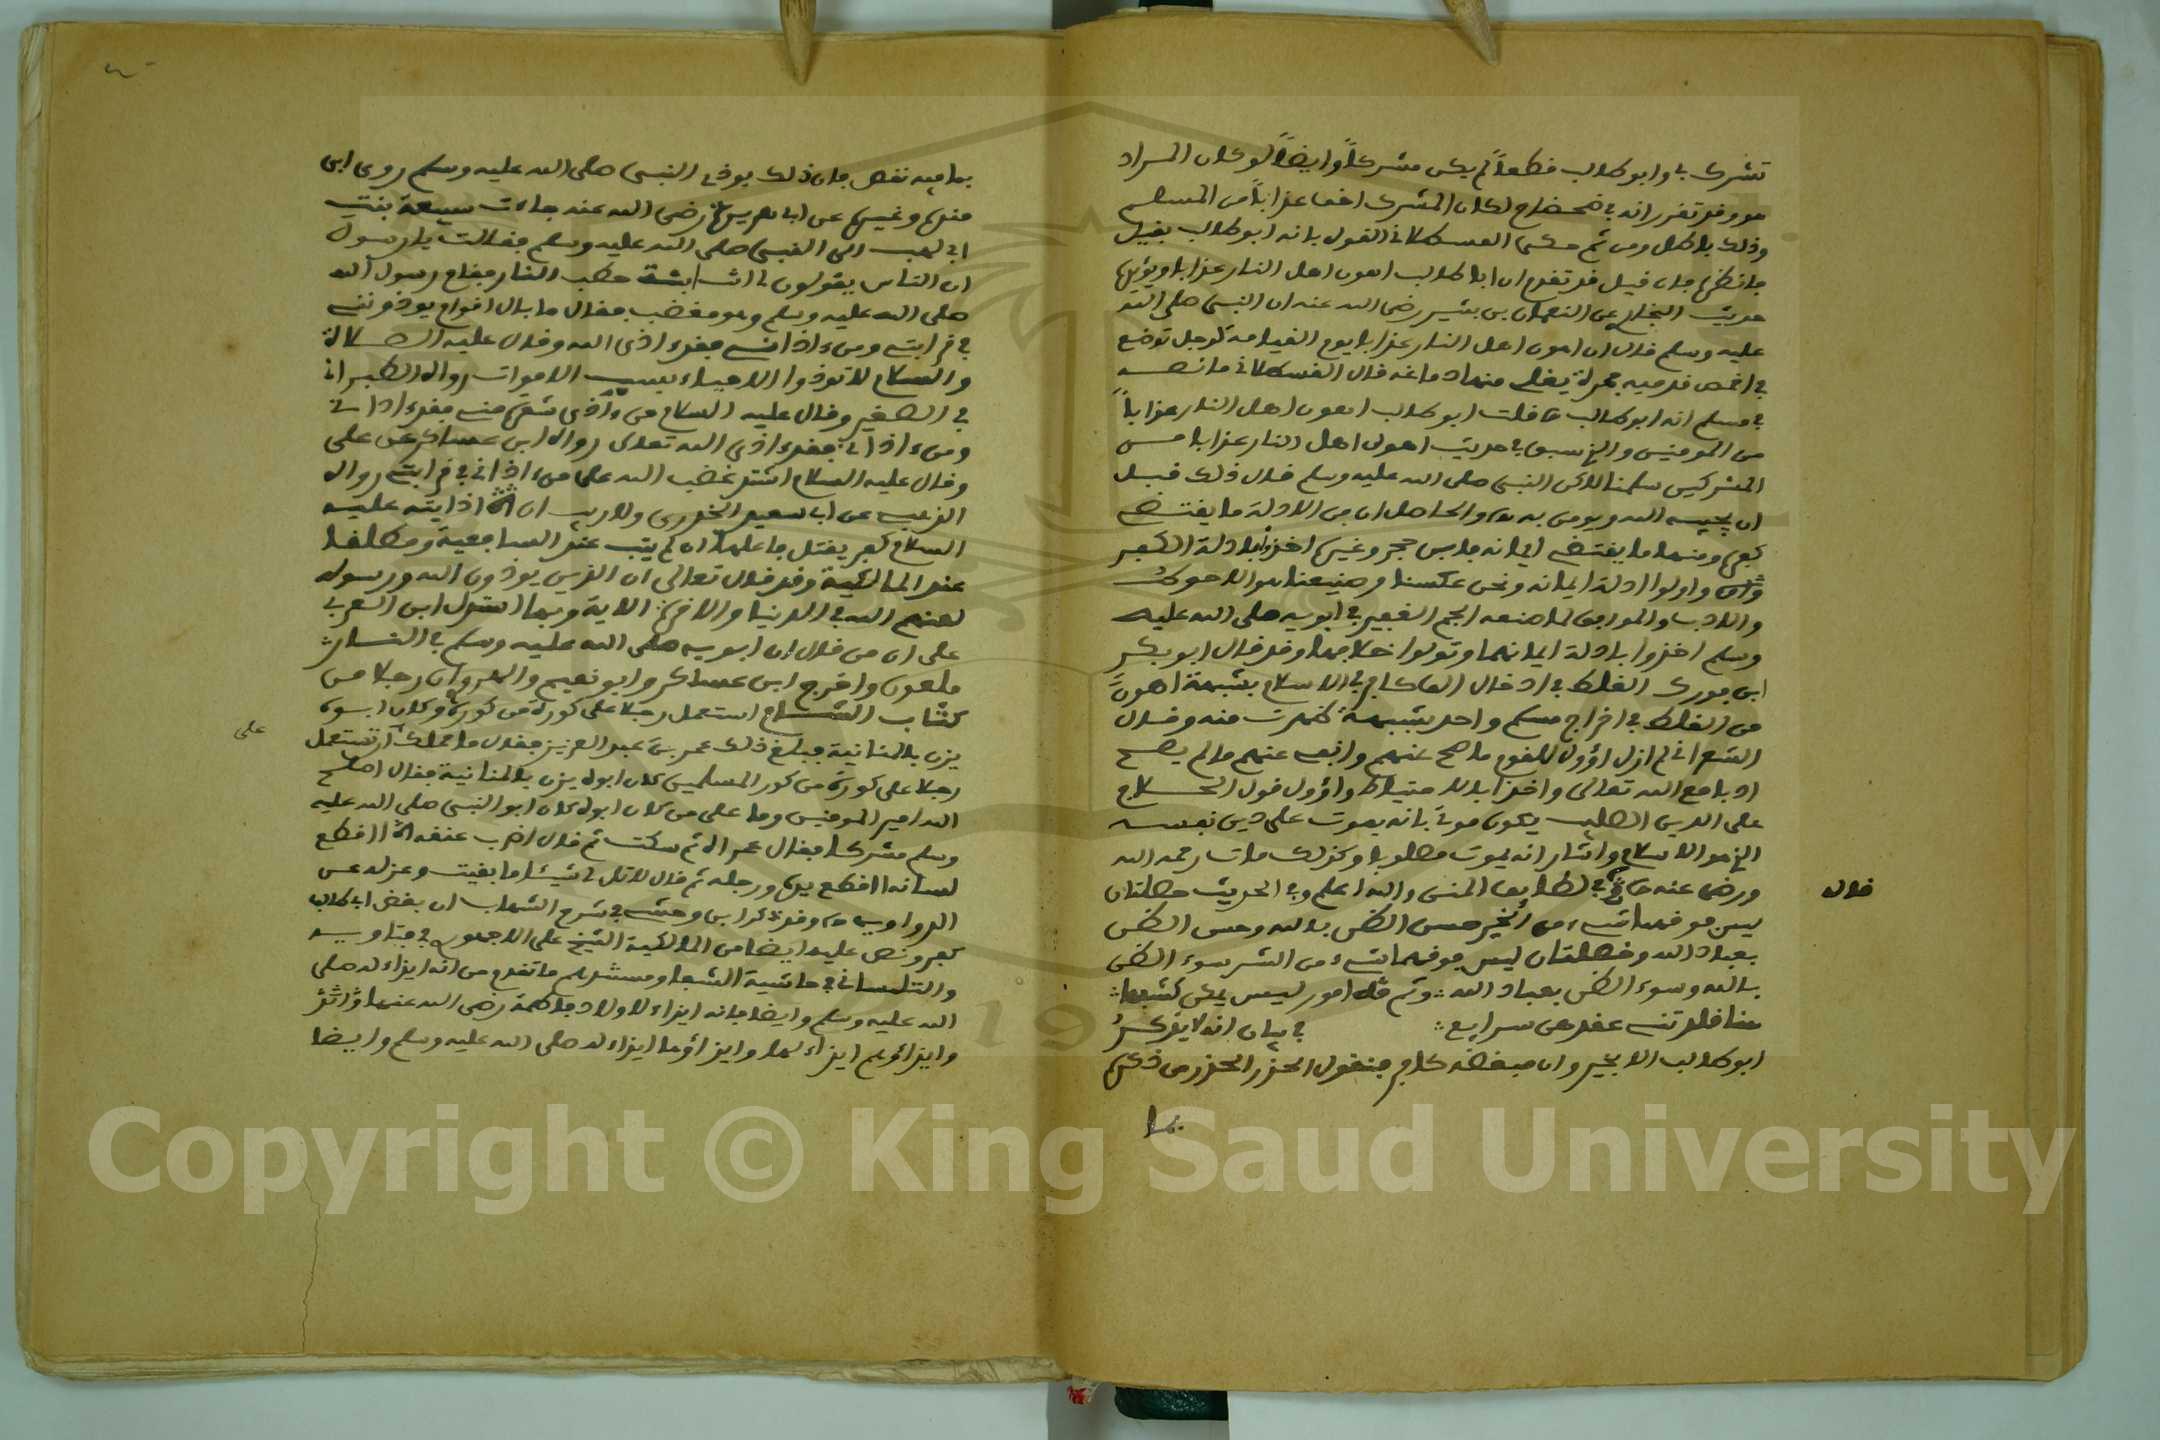 تشرك بي وابو طالب قطعا لم يكن مشركا وايضا لو كان المراد
هو وقد تقرر انه في ضحضاح لكان المشرك اخف عذابا من المسلم
وذلك باطل ومن ثم حكى العسقلاني القول بانه ابو طالب بقيل
فانظره فان قيل قد تقدم ان ابا طالب اهون اهل النار عذابا ويؤيده
حديث البخاري عن النعمان بن بشير رضي الله عنه ان النبي صلى الله
عليه وسلم قال ان اهون اهل النار عذابا يوم القيامة لرجل توضع
في اخمص قدميه جمرة يغلي منها دماغه قال القسطلاني ما نصه
في مسلم انه ابو طالب قلت ابو طالب اهون اهل النار عذابا
من المومنين والذي سبق في حديث اهون اهل النار عذابا من
المشركين سلمنا لاكن النبي صلى الله عليه وسلم قال ذلك قبل
ان يحييه الله ويومن به والحاصل ان من الادلة ما يقتضي
كفره ومنها ما يقتضي ايمانه فابن حجر وغيره اخذوا بادلة الكفر
واولوا ادلة ايمانه ونحن عكسنا وصنيعنا هو الاحوط
والادب والموافق لما صنعه الجم الغفير في ابويه صلى الله عليه
وسلم اخذوا بادلة ايمانهما وتولوا خلافها وقد قال ابو بكر
ابن فورك الغلط في ادخال الف كافر في الاسلام بشبهة اهون
من الغلط في اخراج مسلم واحد بشبهة ظهرت منه وقال
الشعراني لم ازل اؤول للقوم ما صح عنهم وانفي عنهم ما لم يصح
ادبا مع الله تعالى واخذا بالاحتياط واؤول قول الحلاج
على الدين الصليب يكون موتي بانه يموت على دين نفسه
الذي هو الاسلام واشار انه يموت مصلوبا وكذلك مات رحمه الله
ورضي عنه في لطايف المنن والله اعلم وفي الحديث خصلتان
ليس فوقهما شيء من الخير حسن الظن بالله وحسن الظن
بعباد الله وخصلتان ليس فوقهما شيء من الشر سوء الظن
بالله وسوء الظن بعباد الله وثم امور ليس يمكن كشفها
هنا قلدتني عقدهن سرايع في بيان انه لا يذكر
ابو طالب الا بخير وان مبغضه كافر فنقول الحذر الحذر من ذكره
بما
قال
بما فيه نقص فان ذلك يوذي النبي صلى الله عليه وسلم روى ابن
منده وغيره عن ابي هريرة رضي الله عنه جاءت سبيعة بنت
ابي لهب الى النبي صلى الله عليه وسلم فقالت يا رسول
ان الناس يقولون لي انت ابنة حطب النار فقام رسول الله
صلى الله عليه وسلم وهو مغضب فقال ما بال اقوام يوذونني
في قرابتي ومن اذاني فقد اذى الله وقال عليه الصلاة
والسلام لا توذوا الاحياء بسب الاموات رواه الطبراني
في الصغير وقال عليه السلام من اذى شعرة مني فقد اذاني
ومن اذاني فقد اذى الله تعالى رواه ابن عساكر عن علي
وقال عليه السلام اشتد غضب الله على من اذاني في قرابتي رواه
الذهبي عن ابي سعيد الخدري ولا ريب ان اذايته عليه
السلام كفر يقتل فاعلها ان لم يتب عند الشافعية ومطلقا
عند المالكية وقد قال تعالى ان الذين يوذون الله ورسوله
لعنهم الله في الدنيا والاخرة الاية وبها استدل ابن العربي
على ان من قال ان ابويه صلى الله عليه وسلم في النار
ملعون واخرج ابن عساكر وابو نعيم والهروي ان رجلا من
كتاب الشام استعمل رجلا على كورة من كورة وكان ابوه
يزن بالمنانية فبلغ ذلك عمر بن عبد العزيز فقال ما حملك ان تستعمل
رجلا على كورة من كور المسلمين كان ابوه يزن بالمنانية فقال اصلح
الله امير المومنين وما علي من كان ابوه كان ابو النبي صلى الله عليه
وسلم مشركا فقال عمر اه ثم سكت ثم قال اضرب عنقه اقطع
لسانه اقطع يده ورجله ثم قال لا تل لي شيئا ما بقيت وعزله عن
الدواوين وقد ذكر ابن وحشي في شرح الشهاب ان بغض ابي طالب
كفر ونص عليه ايضا من المالكية الشيخ علي الاجهوري في فتاويه
والتلمساني في حاشية الشفا ومستندهم ما تقدم من انه ايذاء له صلى
الله عليه وسلم وايضا فانه ايذاء لاولاد فاطمة رضي الله عنها
وايذاؤهم ايذاء لها وايذاؤها ايذاء له صلى الله عليه وسلم وايضا
على
Copyright © King Saud University